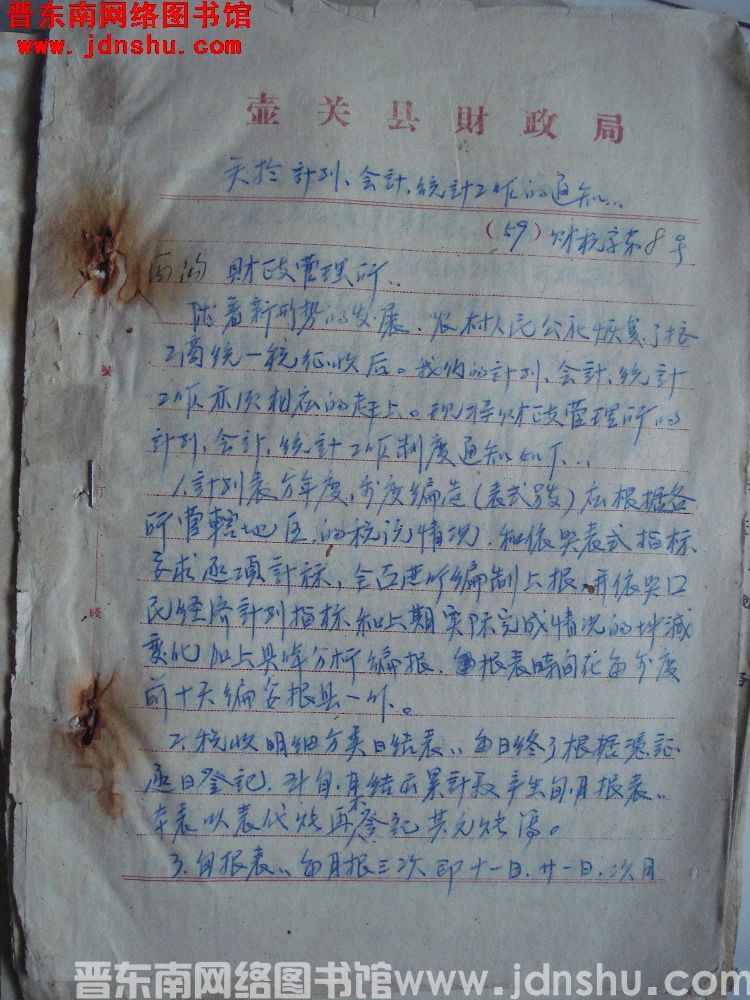 晋东南网络图书馆
www.jdnshu.com
壶关县財政局
关於計划、会計、統計工作的通知
(59)财税字第8号
財政管理所
随着新形势的发展、农村人民公社恢复了按
工商统一税征收后。我们的計划、会計、統計
工作亦须相应的赶上。現将財政管理所的
計划、会計、統計工作制度通知如下
1.計划表分年度、季度編造(表式)应根据各
所管辖地区的税源情况、和依照表式指标
要求逐項計标,全面進行編制上报、并依照国
民经济計划指标和上期实际完成情况的增减
变化加上具体分析編报、报表時間在每季度
前十天編妥报县一份。
2.税收明細分类日結表、每日終了根据憑証
逐日登記、計旬、月結出累計数产生旬、月报表
本表以表代账再登記其它账簿。
3.旬报表、每月报三次即十一日、廿一日、次月
裝
訂
綫
晋东南网络图书馆www.jdnshu.com